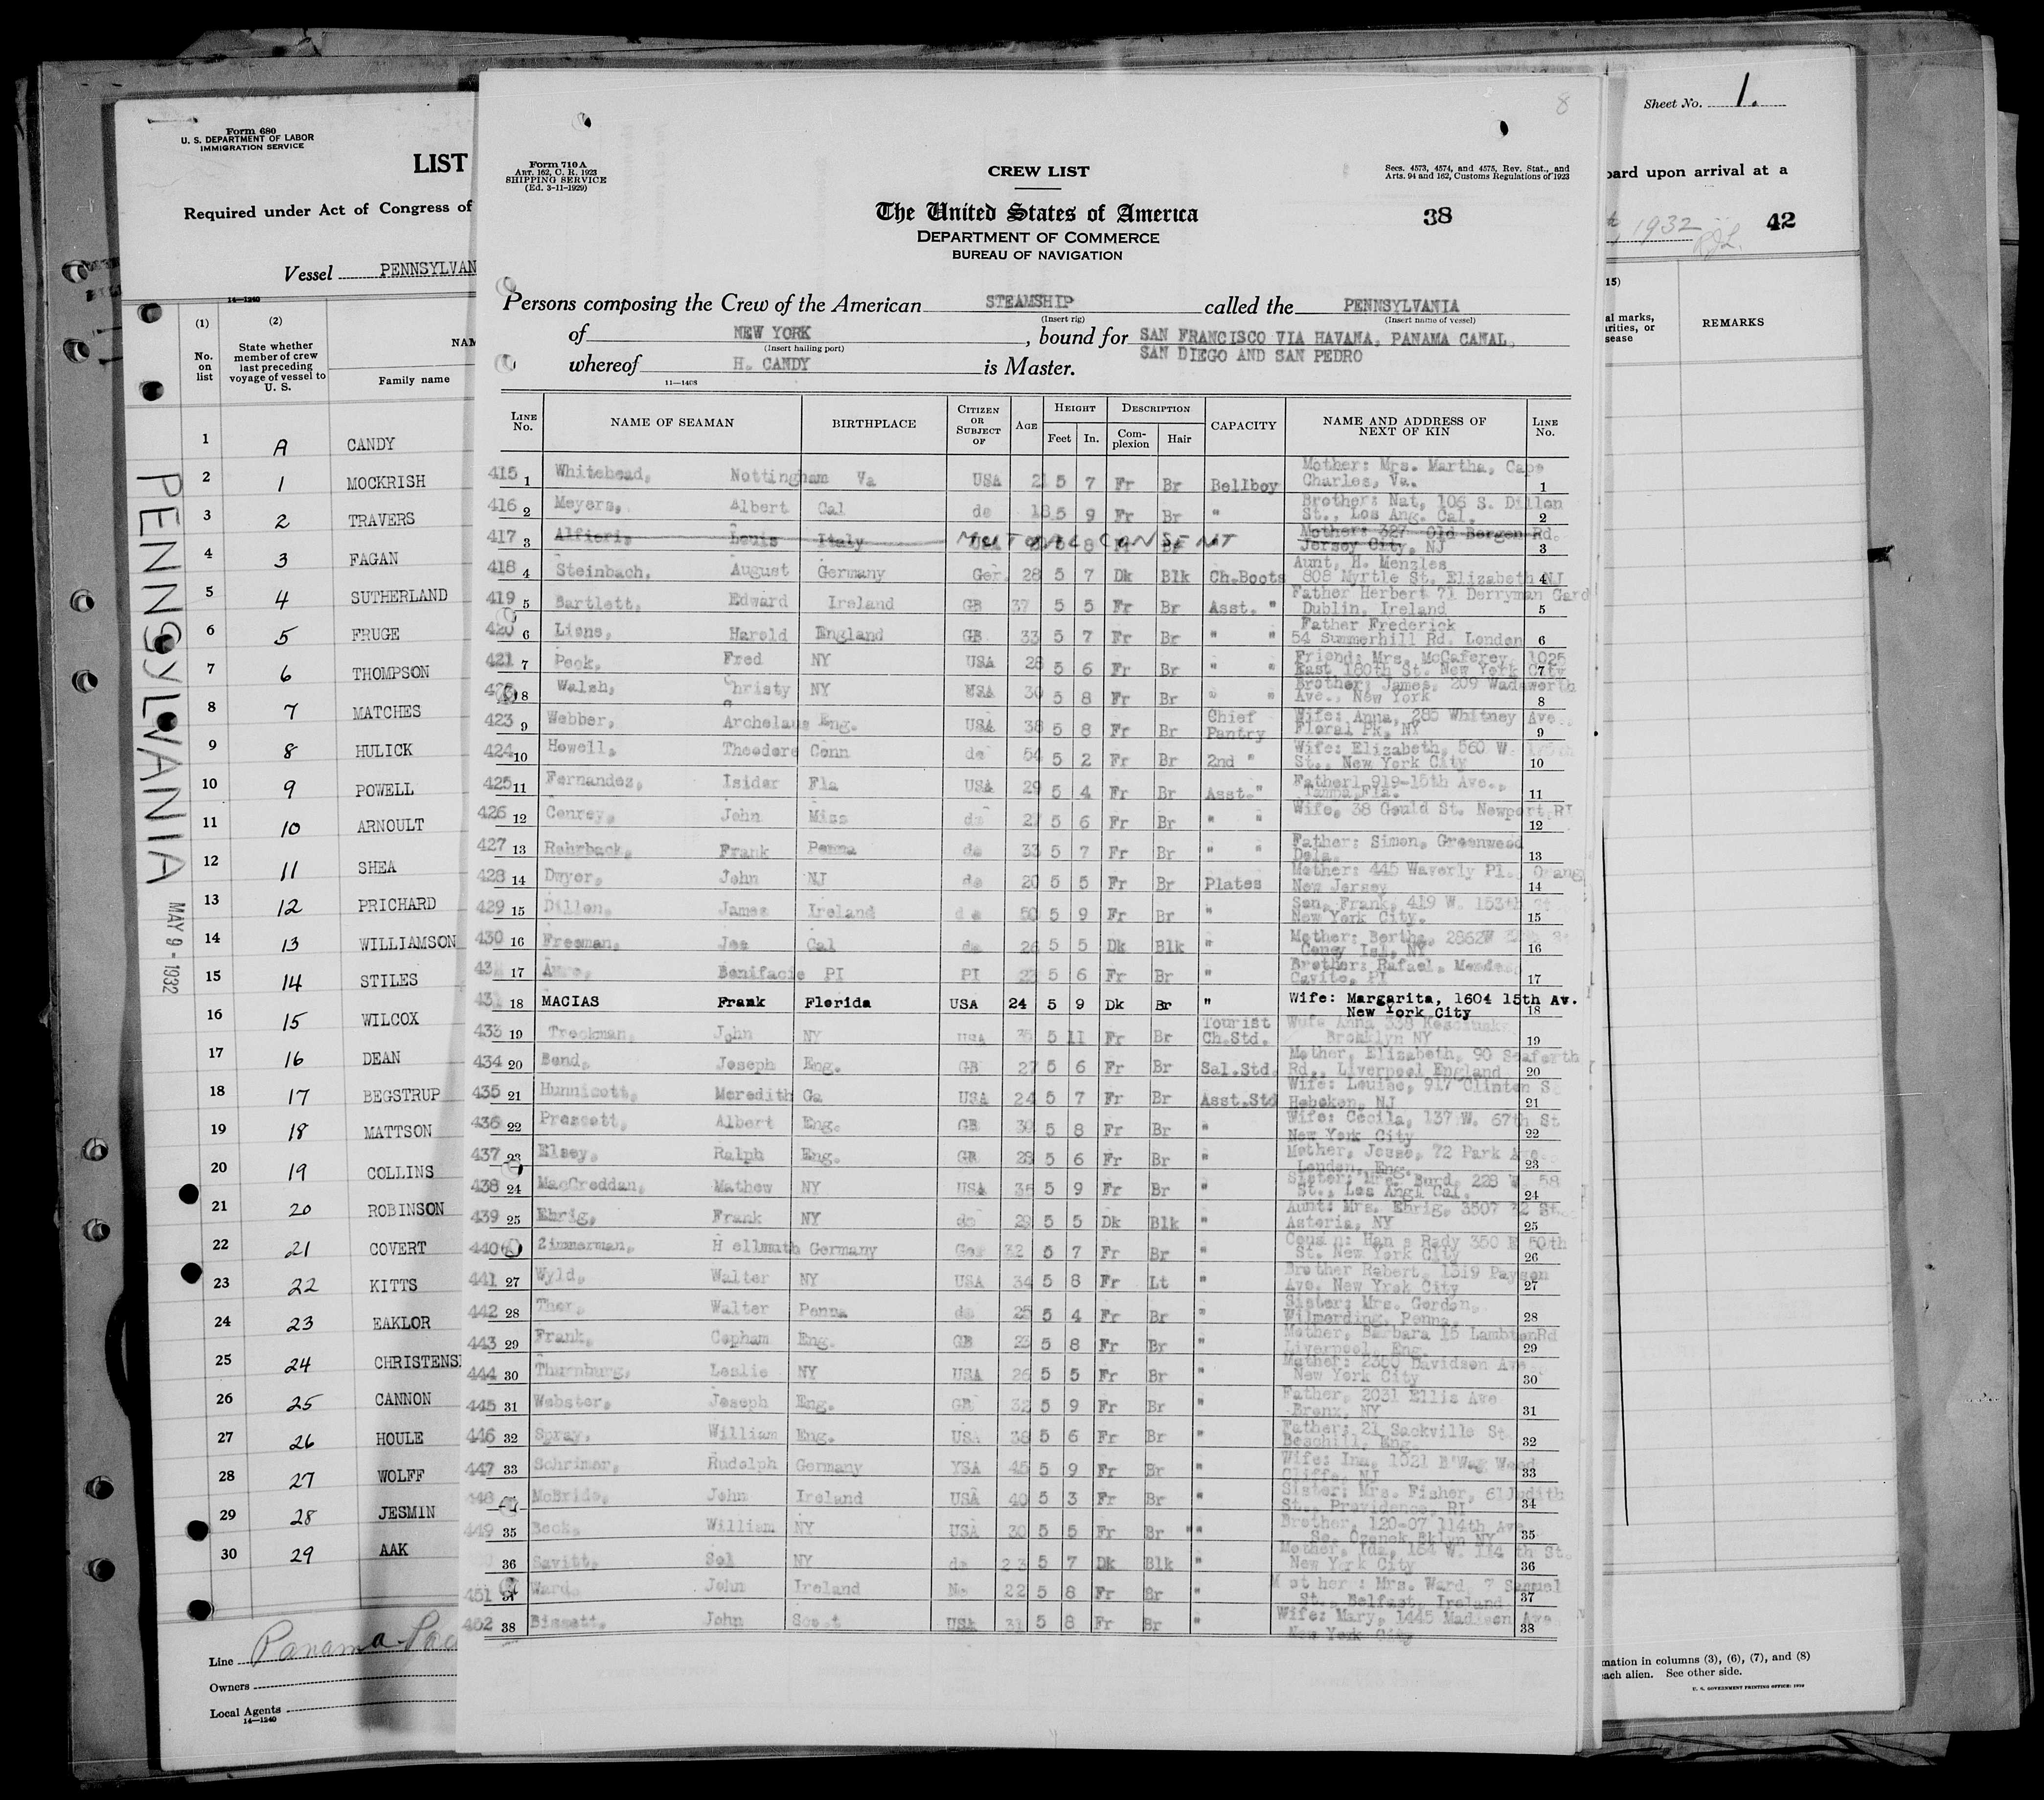 Form 680
U. S. DEPARTMENT OF LABOR
IMMIGRATION SERVICE
LIST
Required under Act of Congress of
Vessel PENNSYLVAN
14—1240
(1) (2)
No. on list
State whether member of crew last preceding voyage of vessel to U. S.
NAM
Family name
1 A CANDY
2 1 MOCKRISH
3 2 TRAVERS
4 3 FAGAN
5 4 SUTHERLAND
6 5 FRUGE
7 6 THOMPSON
8 7 MATCHES
9 8 HULICK
10 9 POWELL
11 10 ARNOULT
12 11 SHEA
13 12 PRICHARD
14 13 WILLIAMSON
15 14 STILES
16 15 WILCOX
17 16 DEAN
18 17 BEGSTRUP
19 18 MATTSON
20 19 COLLINS
21 20 ROBINSON
22 21 COVERT
23 22 KITTS
24 23 EAKLOR
25 24 CHRISTENS
26 25 CANNON
27 26 HOULE
28 27 WOLFF
29 28 JESMIN
30 29 AAK
Line Panama Pac
Owners
Local Agents
14—1240
PENNSYLVANIA
MAY 9 - 1932
8
Form 710 A
ART. 162, C. R. 1923
SHIPPING SERVICE
(Ed. 3-11-1929)
CREW LIST
Secs. 4573, 4574, and 4575, Rev. Stat., and
Arts. 94 and 162, Customs Regulations of 1923
The United States of America
38
DEPARTMENT OF COMMERCE
BUREAU OF NAVIGATION
Persons composing the Crew of the American STEAMSHIP called the PENNSYLVANIA
(Insert rig) (Insert name of vessel)
of NEW YORK, bound for SAN FRANCISCO VIA HAVANA, PANAMA CANAL,
(Insert hailing port)
SAN DIEGO AND SAN PEDRO
whereof H. CANDY is Master.
11—1408
LINE No. NAME OF SEAMAN BIRTHPLACE CITIZEN OR SUBJECT OF AGE HEIGHT Feet In. DESCRIPTION Complexion Hair CAPACITY NAME AND ADDRESS OF NEXT OF KIN LINE No.
415 1 Whitehead, Nottingham Va USA 21 5 7 Fr Br Bellboy Mother: Mrs. Martha, Cape Charles, Va. 1
416 2 Meyers, Albert Cal do 18 5 9 Fr Br " Brother: Nat, 106 S. Dillon St., Los Ang. Cal. 2
417 3 Alfieri, Louis Italy MUTUAL CONSENT Mother: 327 Old Bergen Rd. Jersey City, NJ 3
418 4 Steinbach, August Germany Ger. 28 5 7 Dk Blk Ch.Boots Aunt, H. Menzles 808 Myrtle St. Elizabeth NJ 4
419 5 Bartlett, Edward Ireland GB 37 5 5 Fr Br Asst. " Father Herbert 71 Derryman Gard Dublin, Ireland 5
420 6 Liens, Harold England GB 33 5 7 Fr Br " " Father Frederick 54 Summerhill Rd. London 6
421 7 Peck, Fred NY USA 28 5 6 Fr Br " " Friend: Mrs. McCaferey, 1025 East 180th St. New York City 7
8 Walsh, Christy NY USA 30 5 8 Fr Br " " Brother: James, 209 Wadsworth Ave., New York 8
423 9 Webber, Archelaus Eng. USA 38 5 8 Fr Br Chief Pantry Wife: Anna, 285 Whitney Ave. Floral Pk, NY 9
424 10 Howell, Theodore Conn do 54 5 2 Fr Br 2nd " Wife: Elizabeth, 560 W. St., New York City 10
425 11 Fernandez, Isidor Fla USA 29 5 4 Fr Br Asst. " Father, 919-15th Ave., Tampa Fla. 11
426 12 Conroy, John Miss do 27 5 6 Fr Br " " Wife, 38 Gould St. Newport RI 12
427 13 Rohrback, Frank Penna do 33 5 7 Fr Br " " Father: Simon, Greenwood Dela. 13
428 14 Dwyer, John NJ do 20 5 5 Fr Br Plates Mother: 445 Waverly Pl., Orang New Jersey 14
429 15 Dillon, James Ireland do 50 5 9 Fr Br " Son, Frank, 419 W. 153th St New York City. 15
430 16 Freeman, Joe Cal do 26 5 5 Dk Blk " Mother: Bertha, 2862 Coney Isl, NY 16
17 Bonifacio PI PI 5 6 Fr Br " Brother: Rafael, Cavite, PI 17
18 MACIAS Frank Florida USA 24 5 9 Dk Br " Wife: Margarita, 1604 15th Av. New York City 18
433 19 Treckman, John NY USA 5 11 Fr Br Tourist Ch.Std. Wufe Anna 338 Brooklyn NY 19
434 20 Bond, Joseph Eng. GB 27 5 6 Fr Br Sal.Std. Mother, Elizabeth, 90 Seaforth Rd., Liverpool England 20
435 21 Hunnicott, Meredith Ga USA 24 5 7 Fr Br Asst.Std Wife: Louise, 917 Clinton S Hoboken, NJ 21
436 22 Prescott, Albert Eng. GB 30 5 8 Fr Br " Wife: Cecila, 137 W. 67th St New York City 22
437 23 Elsey, Ralph Eng. GB 28 5 6 Fr Br " Mother, Jesse, 72 Park Ave. London, Eng. 23
438 24 MacCreddan, Mathew NY USA 35 5 9 Fr Br " Sister: Mrs. Burd, 228 W. 58 St., Los Angk Cal. 24
439 25 Ehrig, Frank NY do 29 5 5 Dk Blk " Aunt: Mrs. Ehrig, 3507 St. Astoria, NY 25
440 Zimmerman, Hellmuth Germany Ger 32 5 7 Fr Br " Cousin: Hans Rady 350 E 50th St. New York City 26
441 27 Wyld, Walter NY USA 34 5 8 Fr Lt " Brother Robert, 1319 Payson Ave. New Yrok City 27
442 28 Thor, Walter Penna do 25 5 4 Fr Br " Sister: Mrs. Gordon, Wilmerding, Penna. 28
443 29 Frank, Copham Eng. GB 23 5 8 Fr Br " Mother, Barbara 15 LambtonRd Liverpool, Eng. 29
444 30 Thurnburg, Leslie NY USA 26 5 5 Fr Br " Mother: 2350 Davidson Ave New York City 30
445 31 Webster, Joseph Eng. GB 32 5 9 Fr Br " Father, 2031 Ellis Ave Bronx, NY 31
446 32 Spray, William Eng. USA 38 5 6 Fr Br " Father: 21 Sackville St. Bexchill, Eng. 32
447 33 Schrimar, Rudolph Germany YSA 45 5 9 Fr Br " Wife: Ina, 1021 B'Way Wood Cliffe, NJ 33
McBride, John Ireland USA 40 5 3 Fr Br " Sister: Mrs. Fisher, 61Judith St., Providence, RI 34
449 35 Beck, William NY USA 30 5 5 Fr Br "" Brother, 120-07 114th Ave So. Ozonck Bklyn NY 35
36 Savitt, Sol NY do 23 5 7 Dk Blk " Mother, Ida, 164 W. 114 th St. New York City 36
451 37 Ward, John Ireland 22 5 8 Fr Br " Mother: Mrs. Ward, 7 Samuel St., Belfast, Ireland 37
452 38 Bissett, John Scot USA 31 5 8 Fr Br " Wife: Mary, 1445 Madison Ave New York City 38
Sheet No. 1.
oard upon arrival at a
1932 42
15)
al marks,
arities, or
sease
REMARKS
mation in columns (3), (6), (7), and (8)
each alien. See other side.
U. S. GOVERNMENT PRINTING OFFICE: 1929